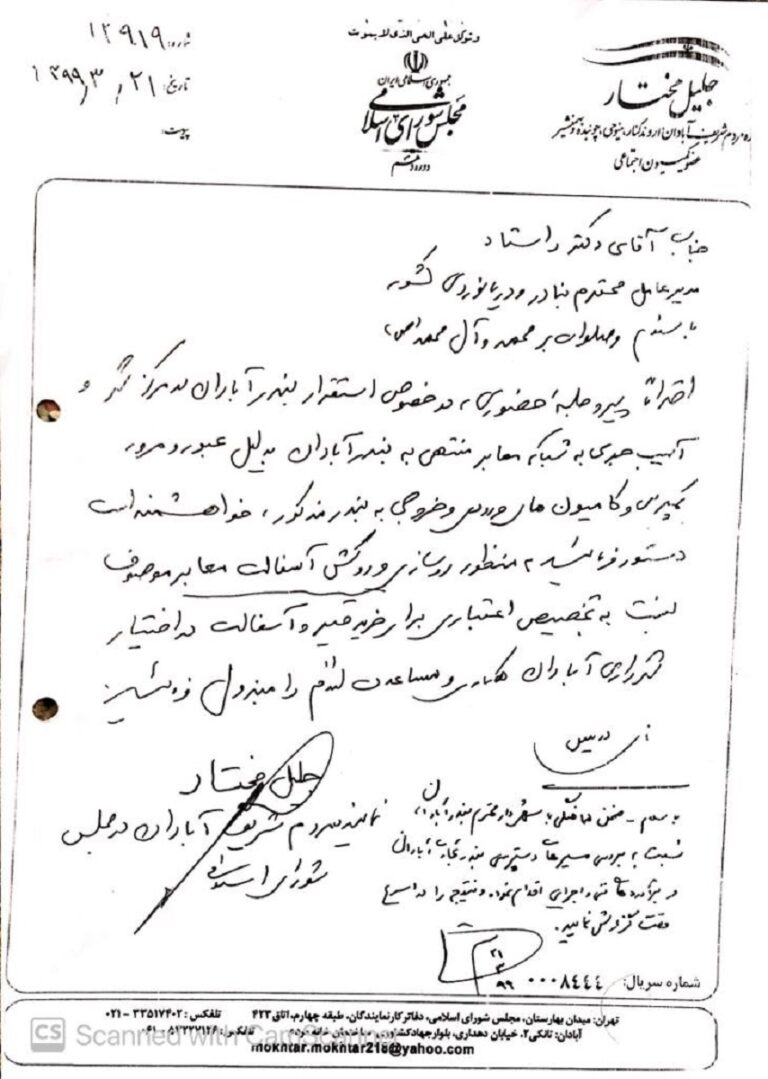 وتوکل علی الحی الذی لا یموت
جمهوری اسلامی ایران
مجلس شورای اسلامی
جلیل مختار
مردم شریف آبادان، اروندکنار، مینوحی، چوئبده و بهمنشیر
عضو کمیسیون اجتماعی
شماره: ۱۲۹۱۹
تاریخ: ۱۳۹۹/۳/۲۱
پیوست:
جناب آقای دکتر راستاد
مدیرعامل محترم بنادر و دریانوردی کشور
با سلام و صلوات بر محمد و آل محمد (ص)،
احتراماً پیرو جلسه حضوری، در خصوص استقرار بندر آبادان در مرکز شهر و
آسیب جدی به شبکه معابر منتهی به بندر آبادان بدلیل عبور و مرور
کمپرسی و کامیون های ورودی و خروجی به بندر مذکور، خواهشمند است
دستور فرمائید به منظور روسازی و روکش آسفالت معابر موصوف
نسبت به تخصیص اعتباری برای خرید قیر و آسفالت در اختیار
شهرداری آبادان همکاری و مساعدت لازم را مبذول فرمائید
جلیل مختار
نماینده مردم شریف آبادان در مجلس
شورای اسلامی
با سلام - ضمن هماهنگی با شهردار محترم بندر آبادان
نسبت به بررسی مسیرهای دسترسی بندر تجاری آبادان
و برآوردهای فنی و اجرایی اقدام نموده و نتیجه را در اسرع
وقت گزارش نمایید.
۲۱
۳
۹۹
شماره سریال: ۰۰۰۸۴۴۴
تهران: میدان بهارستان، مجلس شورای اسلامی، دفاتر کار نمایندگان، طبقه چهارم، اتاق ۴۲۳ تلفکس: ۳۳۵۱۷۴۰۲ - ۰۲۱
آبادان: تانکی ۲، خیابان دهداری، بلوار جهاد کشاورزی، ساختمان خانه مردم تلفکس:
mokhtar.mokhtar218@yahoo.com
CS Scanned with CamScanner